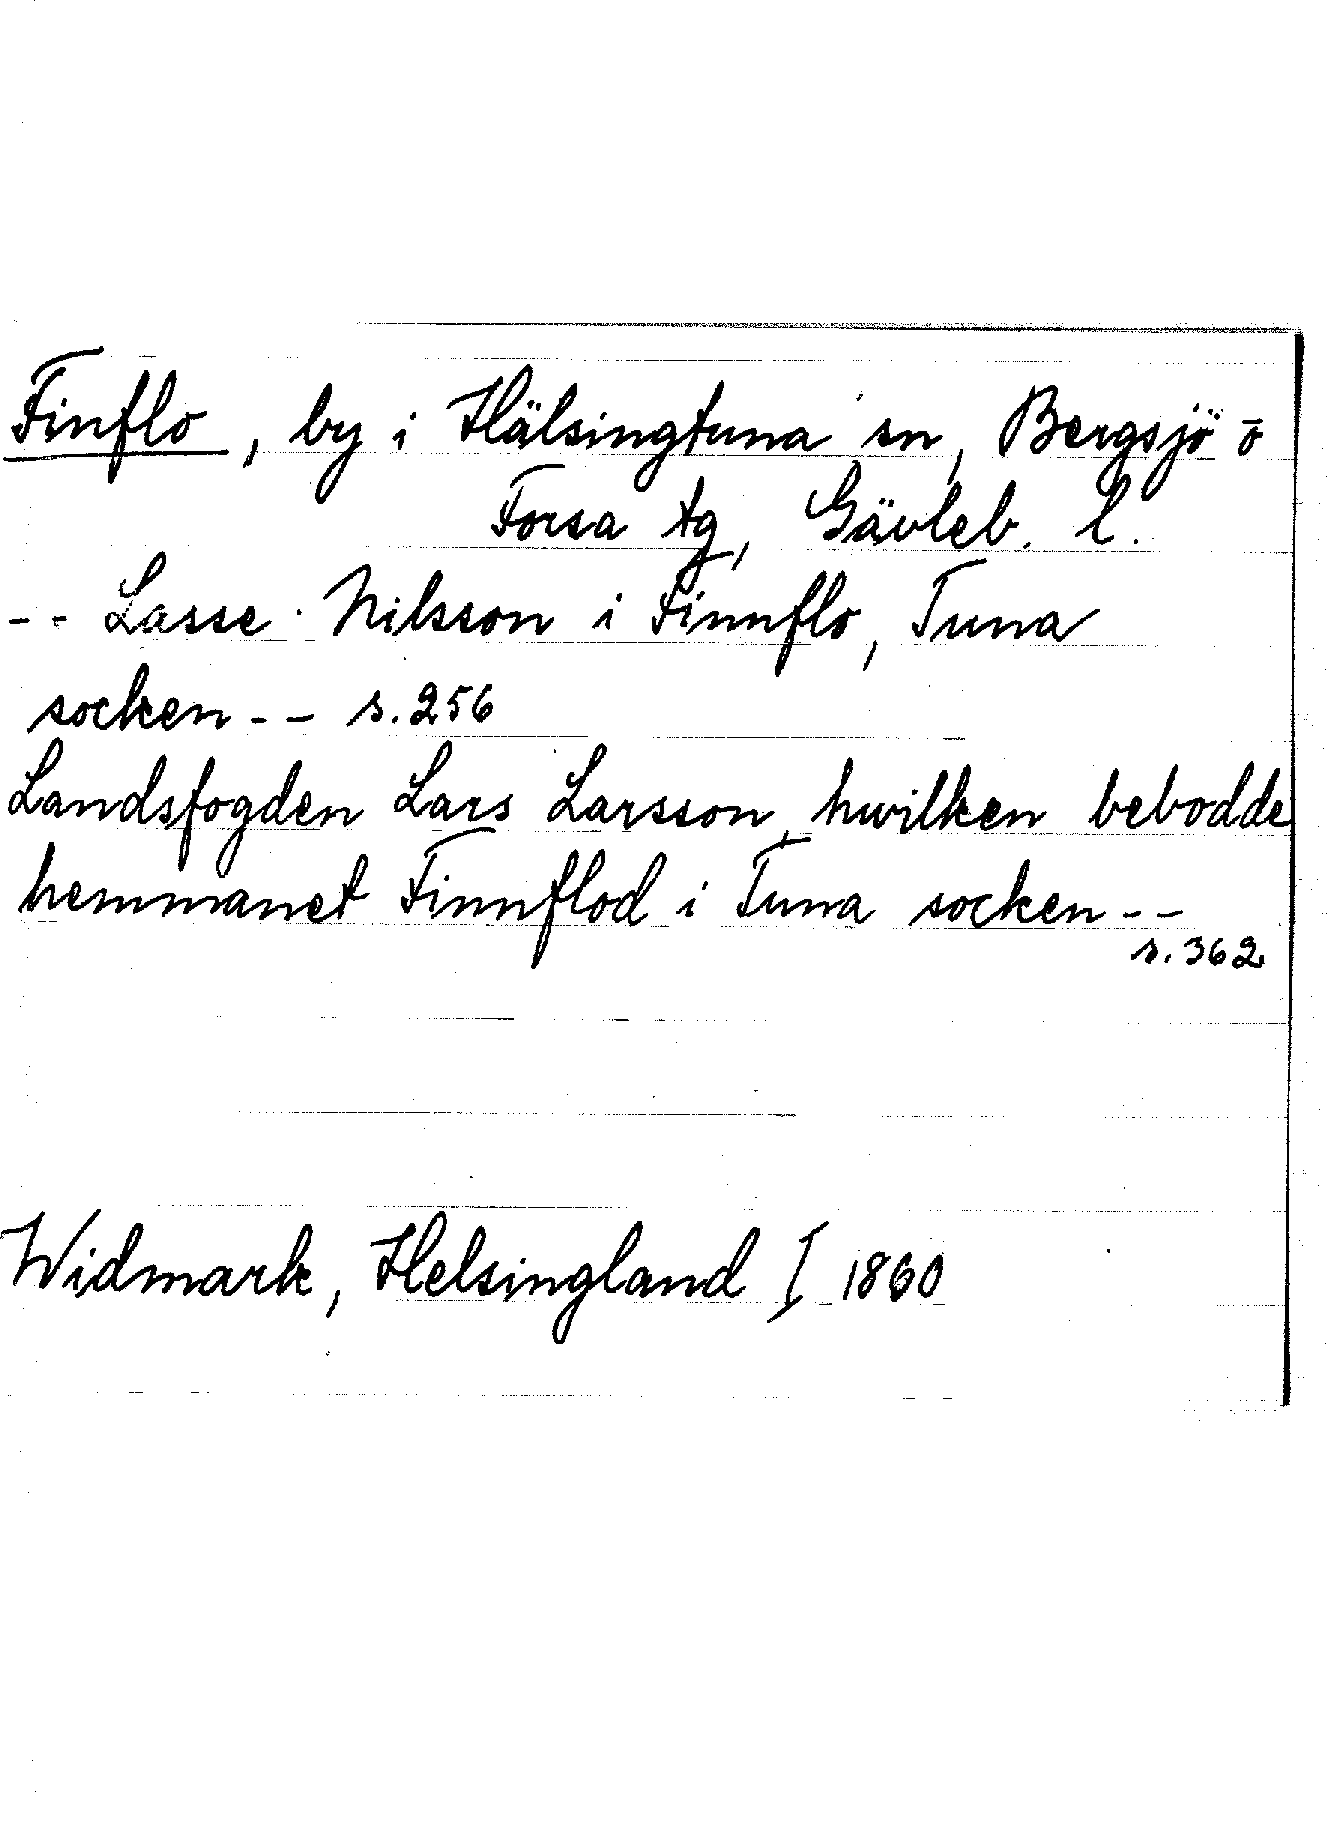 Finflo, by i Hälsingtuna sn, Bergsjö o
Forsa tg, Gävleb. l.
-- Lasse Nilsson i Finnflo, Tuna
socken -- s. 256
Landsfogden Lars Larsson, hwilken bebodde
hemmanet Finnflod i Tuna socken --
s. 362
Widmark, Helsingland I 1860